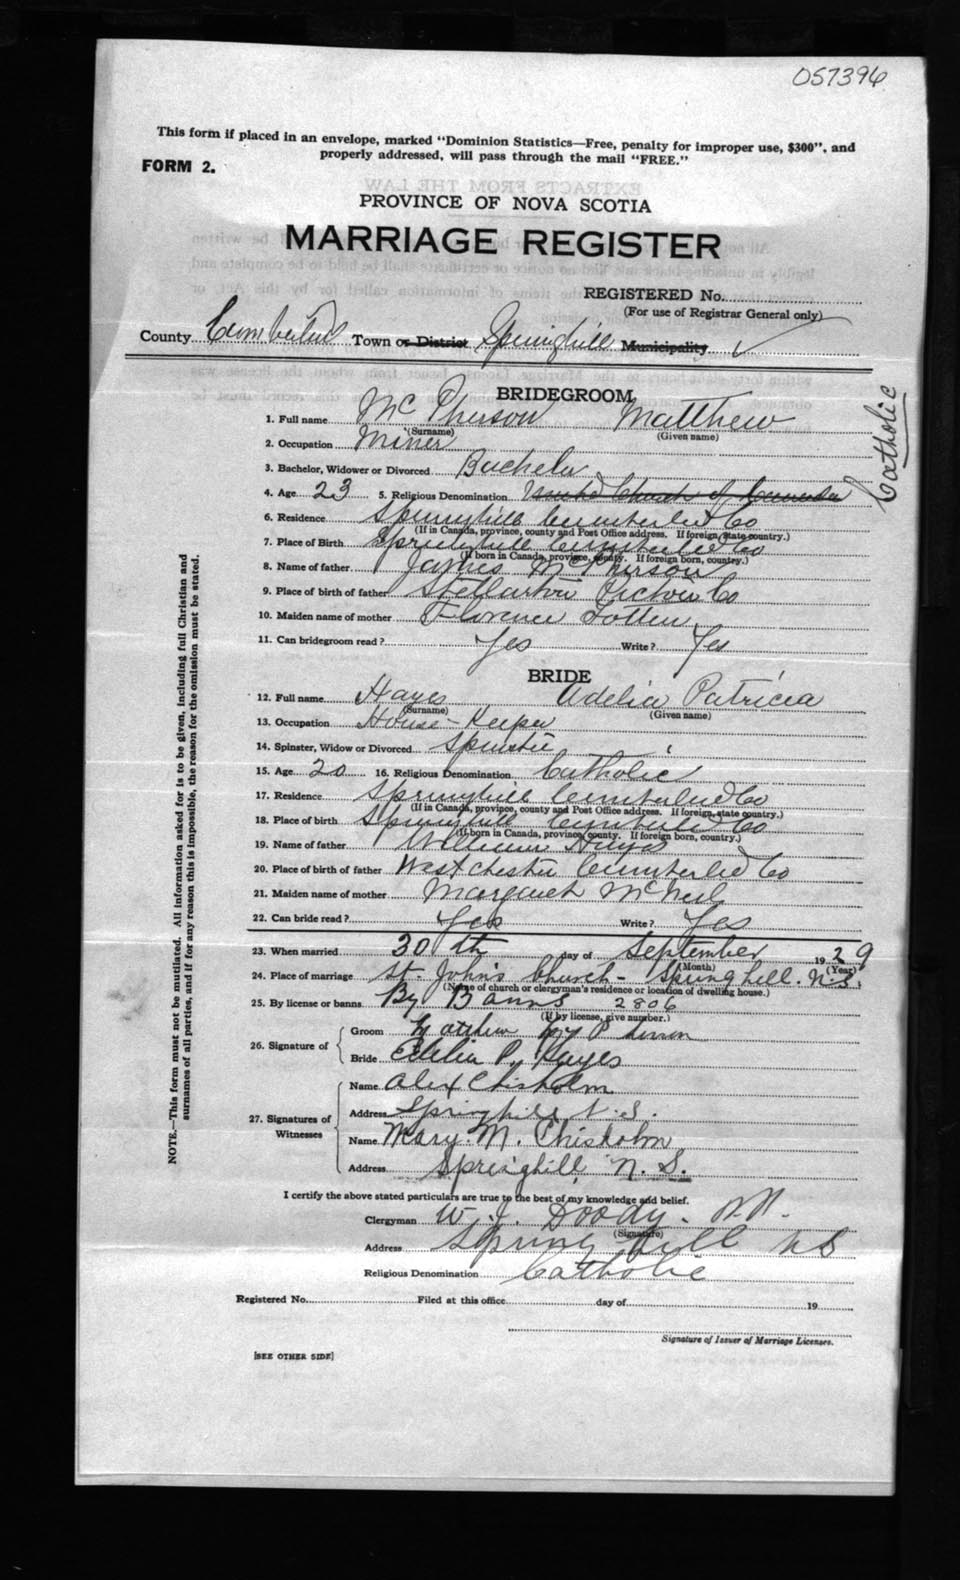 057396
This form if placed in an envelope, marked "Dominion Statistics—Free, penalty for improper use, $300", and
properly addressed, will pass through the mail "FREE."
FORM 2.
PROVINCE OF NOVA SCOTIA
MARRIAGE REGISTER
REGISTERED No.
(For use of Registrar General only)
County Cumberland Town or District Springhill Municipality ✓
BRIDEGROOM
Catholic
1. Full name McPherson Matthew
(Surname) (Given name)
2. Occupation Miner
3. Bachelor, Widower or Divorced Bachelor
4. Age 23 5. Religious Denomination United Church of Canada
6. Residence Springhill Cumberland Co
(If in Canada, province, county and Post Office address. If foreign, state country.)
7. Place of Birth Springhill Cumberland Co
(If born in Canada, province, county. If foreign born, country.)
8. Name of father James McPherson
9. Place of birth of father Stellarton Pictou Co
10. Maiden name of mother Florence
11. Can bridegroom read? Yes Write? Yes
BRIDE
12. Full name Hayes Adelia Patricia
(Surname) (Given name)
13. Occupation House-Keeper
14. Spinster, Widow or Divorced Spinster
15. Age 20 16. Religious Denomination Catholic
17. Residence Springhill Cumberland Co
(If in Canada, province, county and Post Office address. If foreign, state country.)
18. Place of birth Springhill Cumberland Co
(If born in Canada, province, county. If foreign born, country.)
19. Name of father William Hayes
20. Place of birth of father Westchester Cumberland Co
21. Maiden name of mother Margaret McNeil
22. Can bride read? Yes Write? Yes
23. When married 30th day of September 1929
(Month) (Year)
24. Place of marriage St. John's Church - Springhill. N.S.
(Name of church or clergyman's residence or location of dwelling house.)
25. By license or banns By Banns 2806
(If by license, give number.)
26. Signature of
Groom Matthew McPherson
Bride Adelia P. Hayes
27. Signatures of
Witnesses
Name Alex Chisholm
Address Springhill N.S.
Name Mary. M. Chisholm
Address Springhill, N. S.
I certify the above stated particulars are true to the best of my knowledge and belief.
Clergyman W. J. Doody.
(Signature)
Address Spring Hill NS
Religious Denomination Catholic
Registered No. Filed at this office day of 19
Signature of Issuer of Marriage Licenses.
[SEE OTHER SIDE]
NOTE.—This form must not be mutilated. All information asked for is to be given, including full Christian and
surnames of all parties, and if for any reason this is impossible, the reason for the omission must be stated.